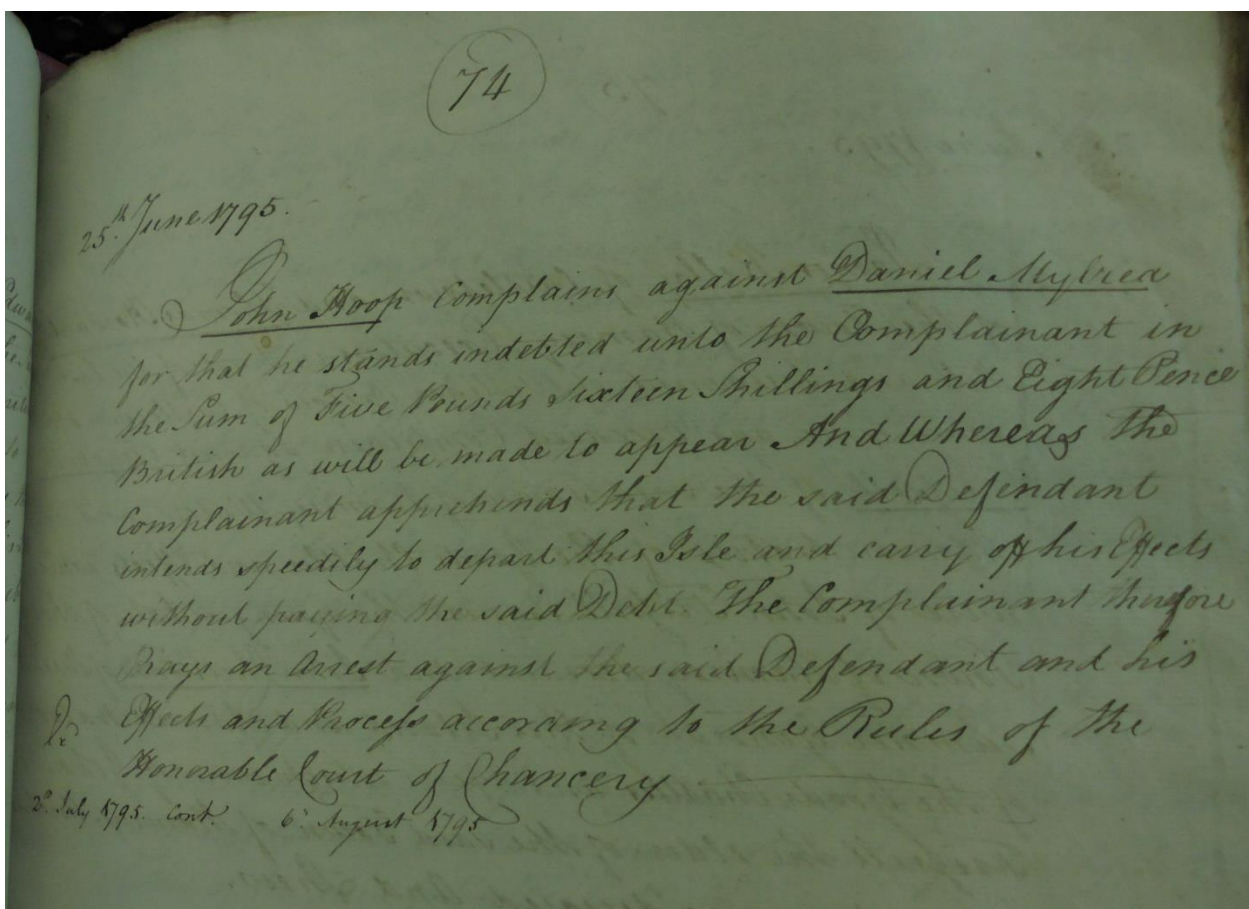 74
25th June 1795.
John Hoop Complains against Daniel Mylrea
for that he stands indebted unto the Complainant in
the Sum of Five Pounds Sixteen Shillings and Eight Pence
British as will be made to appear And Whereas the
Complainant apprehends that the said Defendant
intends speedily to depart this Isle and carry off his Effects
without paying the said Debt. The Complainant therefore
Prays an Arrest against the said Defendant and his
Effects and Process according to the Rules of the
Honorable Court of Chancery
2d July 1795. Cont. 6 August 1795